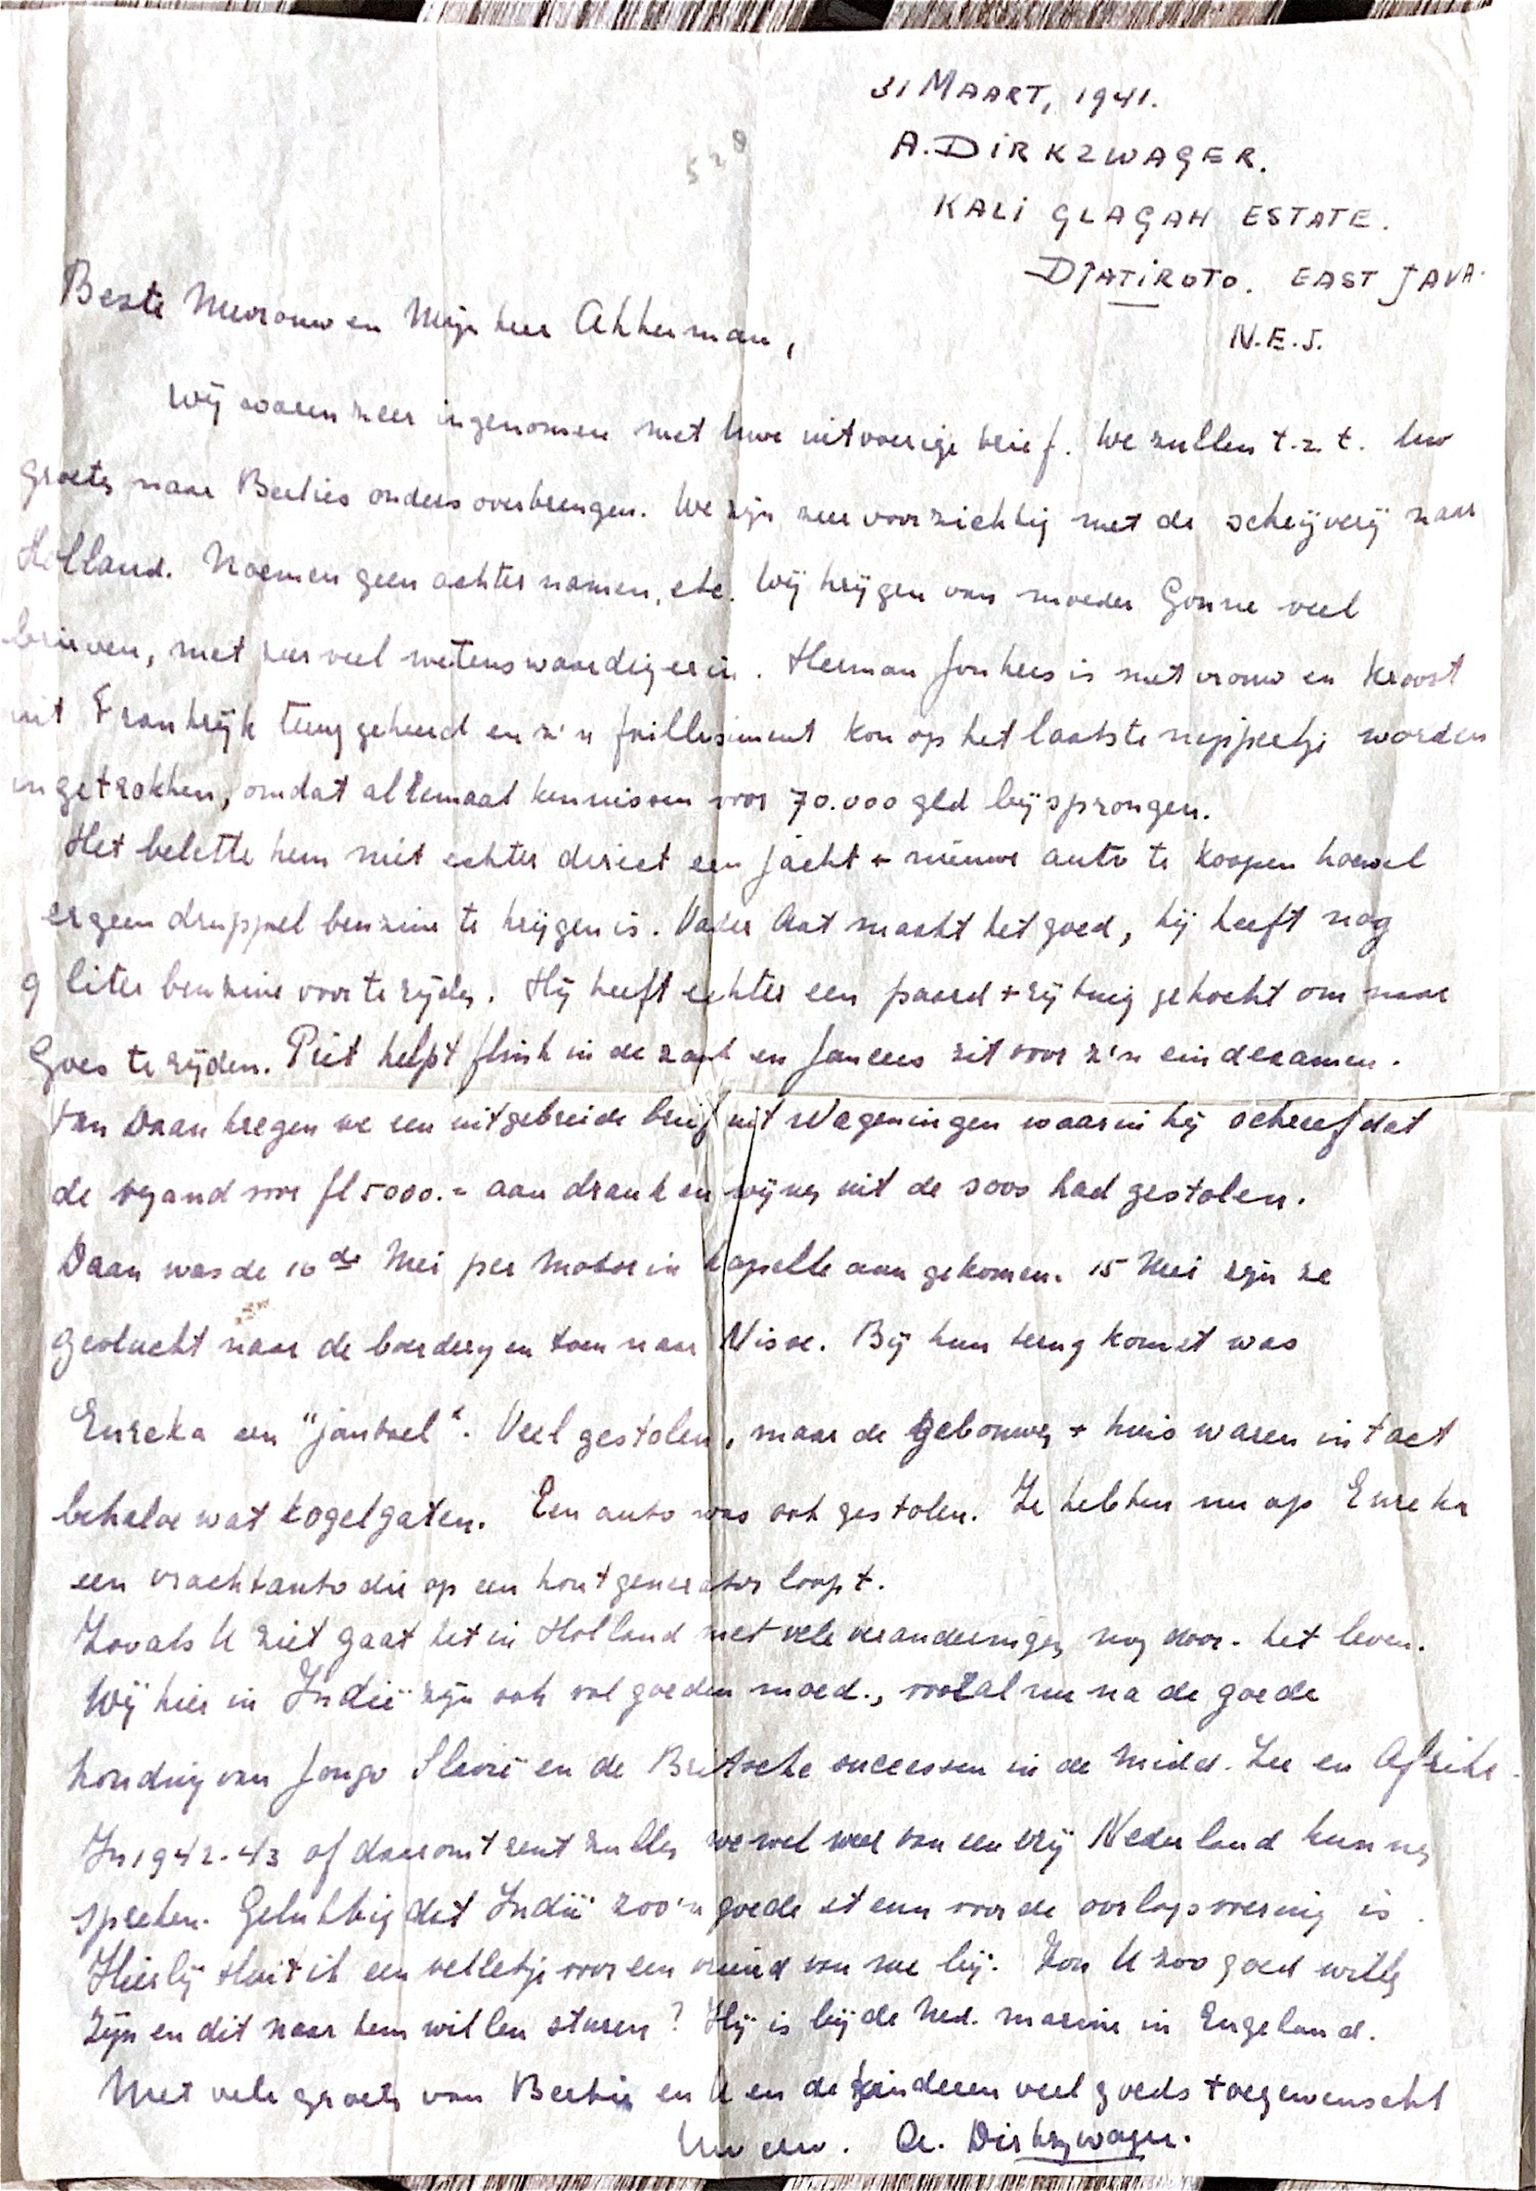 528
31 MAART, 1941.
A. DIRKZWAGER.
KALI GLAGAH ESTATE.
DJATIROTO. EAST JAVA.
N.E.J.
Beste Mevrouw en Mijnheer Akkerman,
Wij waren zeer ingenomen met Uwe uitvoerige brief. We zullen t.z.t. Uw
groeten naar Berties ouders overbrengen. We zijn zeer voorzichtig met de schrijverij naar
Holland. Noemen geen achternamen, etc. Wij krijgen van moeder Gonne veel
brieven, met zeer veel wetenswaardig erin. Herman Jonkers is met vrouw en kroost
uit Frankrijk teruggekeerd en z'n faillissiment kon op het laatste nippertje worden
ingetrokken, omdat allemaal kennissen voor 70.000 gld bijsprongen.
Het belette hem niet echter direct een jacht + nieuwe auto te koopen hoewel
er geen druppel benzine te krijgen is. Vader Aat maakt het goed, hij heeft nog
9 liter benzine voor te rijden. Hij heeft echter een paard + rijtuig gekocht om naar
Goes te rijden. Piet helpt flink in de zaak en Jancees zit voor z'n eindexamen.
Van Daan kregen we een uitgebreide brief uit Wageningen waarin hij schreef dat
de vyand voor fl 5000.= aan drank en wijnen uit de soos had gestolen.
Daan was de 10de Mei per motor in Kapelle aangekomen. 15 Mei zijn ze
gevlucht naar de boerderij en toen naar Nisse. Bij hun terugkomst was
Eureka een "jantoel". Veel gestolen, maar de gebouwen + huis waren intact
behalve wat kogelgaten. Een auto was ook gestolen. Ze hebben nu op Eureka
een vrachtauto die op een houtgenerator loopt.
Zooals U ziet gaat het in Holland met vele veranderingen nog door. het leven.
Wij hier in Indië zijn ook vol goeden moed., vooral nu na de goede
houding van Jongo Slavië en de Britsche successen in de Midd. Zee en Afrika.
In 1942-43 of daaromtrent zullen we wel weer van een vrij Nederland kunnen
spreken. Gelukkig dat Indië zoo'n goede steun voor de oorlogsvoering is.
Hierbij sluit ik een velletje voor een vriend van me bij. Zou U zoo goed willen
zijn en dit naar hem willen sturen? Hij is bij de Ned. marine in Engeland.
Met vele groeten van Bertie en U en de kinderen veel goeds toegewenscht
Uw A. Dirkzwager.